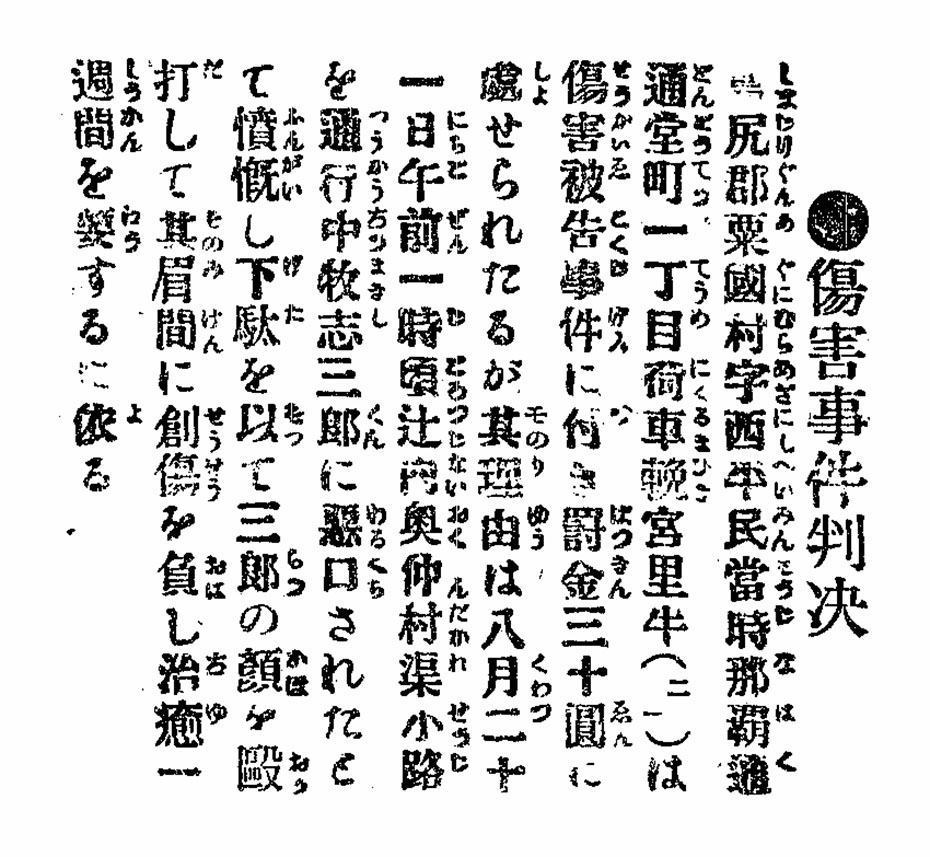 ●傷害事件判決
島尻郡粟國村字西平民當時那覇區
通堂町一丁目荷車挽宮里牛(二一)は
傷害被告事件に付き罰金三十圓に
處せられたるが其理由は八月二十
一日午前一時頃辻内奥仲村渠小路
を通行中牧志三郎に惡口されたと
て憤慨し下駄を以て三郎の顔を毆
打して其眉間に創傷を負し治癒一
週間を要するに依る